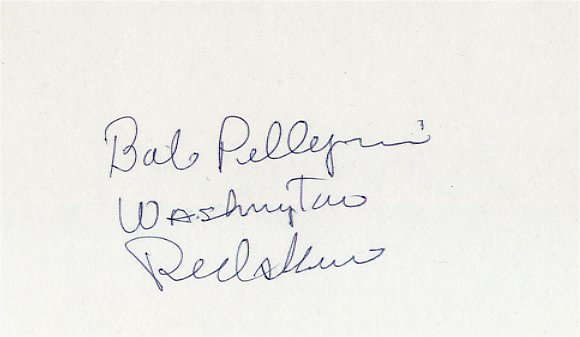 Bob Pellegrini
Washington
Redskins